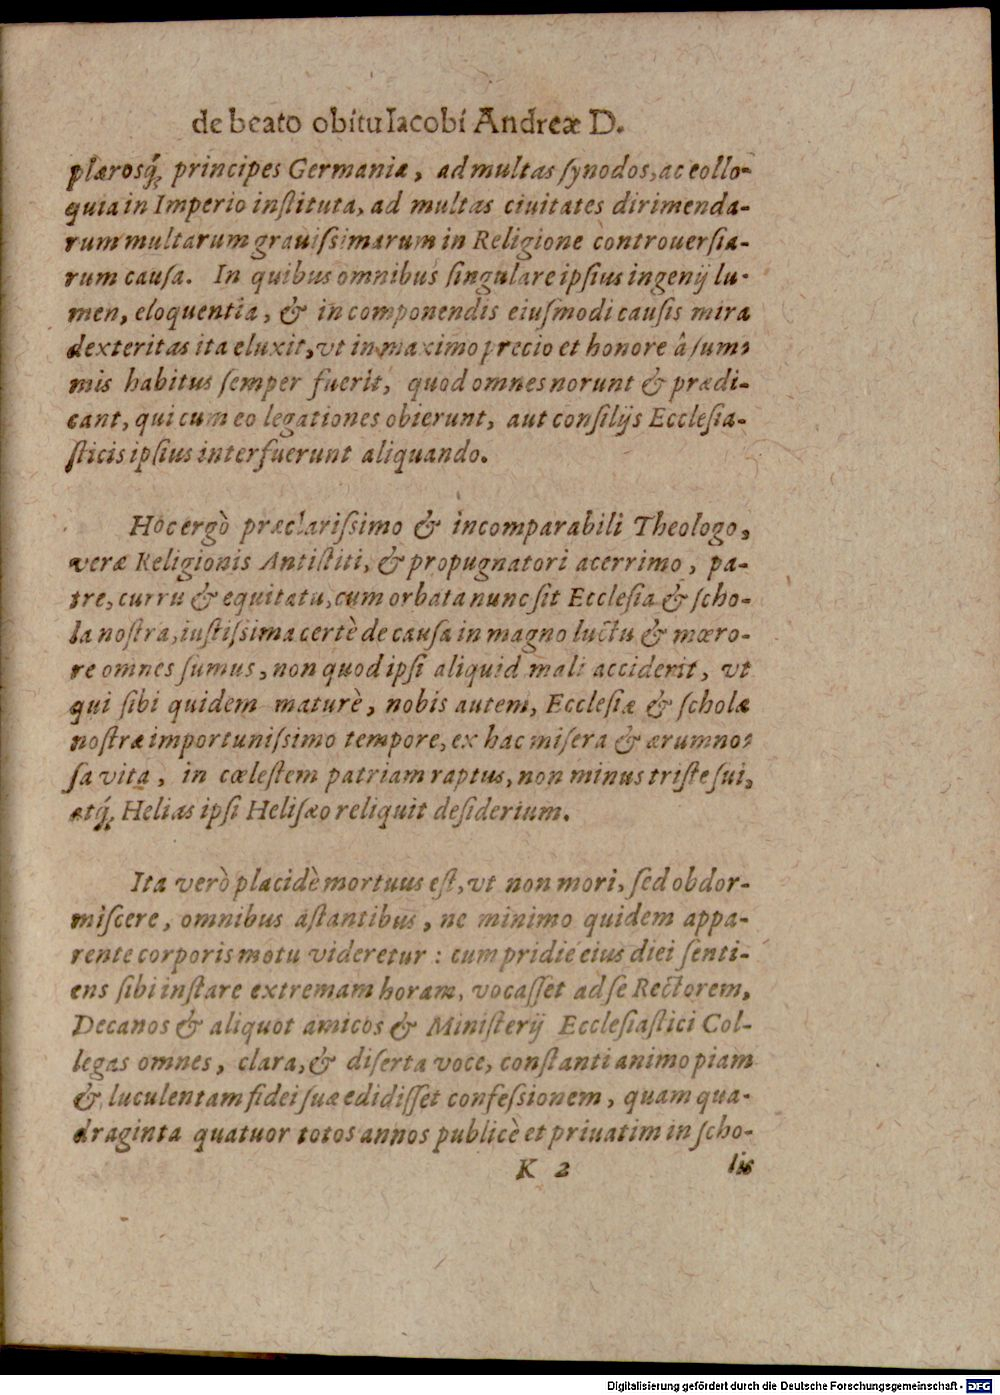 de beato obitu Iacobi Andreæ D.
plærosq́; principes Germaniæ, ad multas ſynodos, ac collo-
quia in Imperio inſtituta, ad multas ciuitates dirimenda-
rum multarum grauiſsimarum in Religione controuerſia-
rum cauſa. In quibus omnibus ſingulare ipſius ingenij lu-
men, eloquentia, & in componendis eiuſmodi cauſis mira
dexteritas ita eluxit, vt in maximo precio et honore â ſum-
mis habitus ſemper fuerit, quod omnes norunt & prædi-
cant, qui cum eo legationes obierunt, aut conſilijs Eccleſia-
ſticis ipſius interfuerunt aliquando.
Hoc ergò præclariſsimo & incomparabili Theologo,
veræ Religionis Antiſtiti, & propugnatori acerrimo, pa-
tre, curru & equitatu, cum orbata nunc ſit Eccleſia & ſcho-
la noſtra, iuſtiſsima certè de cauſa in magno luctu & mœro-
re omnes ſumus, non quod ipſi aliquid mali acciderit, vt
qui ſibi quidem maturè, nobis autem, Eccleſiæ & ſcholæ
noſtræ importuniſsimo tempore, ex hac miſera & ærumno-
ſa vita, in cœleſtem patriam raptus, non minus triſte ſui,
atq́; Helias ipſi Heliſæo reliquit deſiderium.
Ita verò placidè mortuus eſt, vt non mori, ſed obdor-
miſcere, omnibus aſtantibus, ne minimo quidem appa-
rente corporis motu videretur: cum pridiè eius diei ſenti-
ens ſibi inſtare extremam horam, vocaſſet ad ſe Rectorem,
Decanos & aliquot amicos & Miniſterij Eccleſiaſtici Col-
legas omnes, clara, & diſerta voce, conſtanti animo piam
& luculentam fidei ſuæ edidiſſet confeſsionem, quam qua-
draginta quatuor totos annos publicè et priuatim in ſcho-
K 2 lis
Digitalisierung gefördert durch die Deutsche Forschungsgemeinschaft - DFG